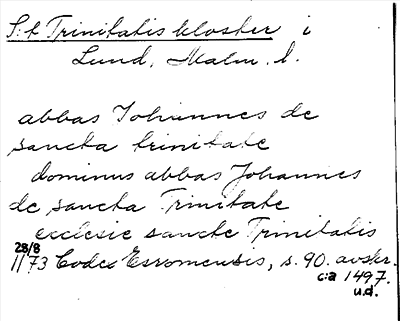 S:t Trinitatis kloster i
Lund, Malm. l.
abbas Johannes de
sancta trinitate
dominus abbas Johannes
de sancta Trinitate
ecclesie sancte Trinitatis
28/8
1173 Codex Esromensis, s. 90. avskr.
c:a 1497.
u.d.